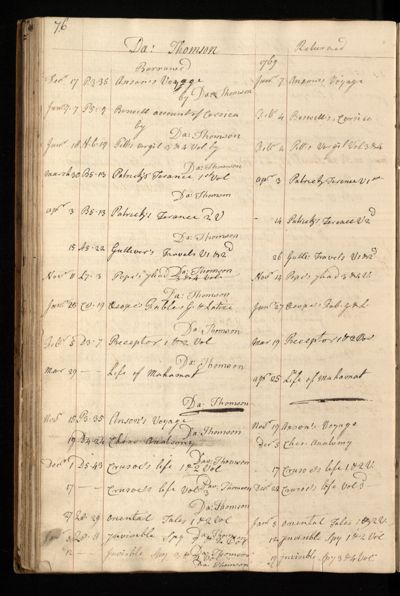 76
Da: Thomson
Borrowed
Returned
1769
Decr 17 P.3-35 Anson's Voyage
by Da: Thomson
Janr 7 Anson's Voyage
Janr 7 P5-9 Boswell account of Corsica
by Da: Thomson
Febr 4 Boswell's Corsica
Janr 18 Pitts Virgil 3 & 4 Vol by
Da: Thomson
Febr 4 Pitt's Virgil Vol 3 & 4
March 30 B5-13 Patrick's Terence 1st Vol
Da: Thomson
apr 3 Patrick's Terence V 1st
apr 3 B5-13 Patrick's Terence 2d V
Da: Thomson
14 Patrick's Terence V 2d
15 A5-22 Gulliver's Travels V 1 & 2d
Da: Thomson
26 Gulli: Travels V 1 & 2d
Novr 11 L7-3 Pope's Iliad 3 & 4 Vol
Da: Thomson
Novr Pope's Iliad 3 & 4 V.
Janr C0-19 Esope's Fables Gr & Latin
Da: Thomson
Janr 27 Esope's Fab. G & L
Febr 5 D3-7 Preceptor 1 & 2 Vol
Da: Thomson
Mar 19 Preceptor 1 & 2 Vol
Mar 29 — Life of Mahomat
Da: Thomson
apr 25 Life of Mahomat
Novr 15 P3-35 Anson's Voyage
Da: Thomson
Novr 19 Anson's Voyage
19 B4-24 Ches: Anatomy
Da: Thomson
Decr 3 Ches: Anatomy
Decr D5-43 Crusoe's life 1 & 2 Vol
Dav: Thomson
17 Crusoe's life 1 & 2 V.
17 — Crusoe's life Vol 3
Dav: Thomson
Decr 22 Crusoe's life V 3d
27 29 oriental Tales 1 & 2 Vol
Da: Thomson
Janr 5 oriental Tales 1 & 2 V.
Invisible Spy 1 & 2 Vol
Da: Thomson
12 Invisible Spy 1 & 2 Vol
12 — Invisible Spy 3 & 4
Da: Thomson
19 Invisible Spy 3 & 4 Vol
Da: Thomson